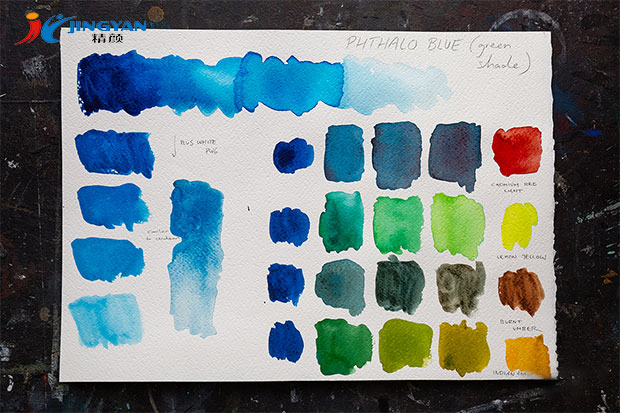 JINGYAN
精颜
PHTHALO BLUE (green
shade)
PLUS WHITE
CADMIUM RED
LIGHT
LEMON YELLOW
BURNT
UMBER